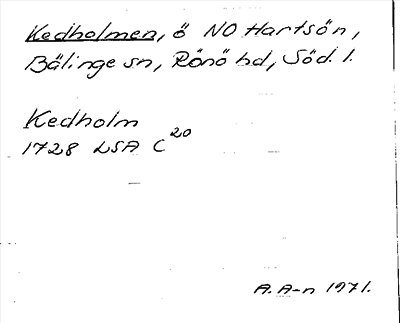 Kedholmen, ö NO Hartsön,
Bälinge sn, Rönö hd, Söd. l.
Kedholm
1728 LSA C20
A. A-n 1971.